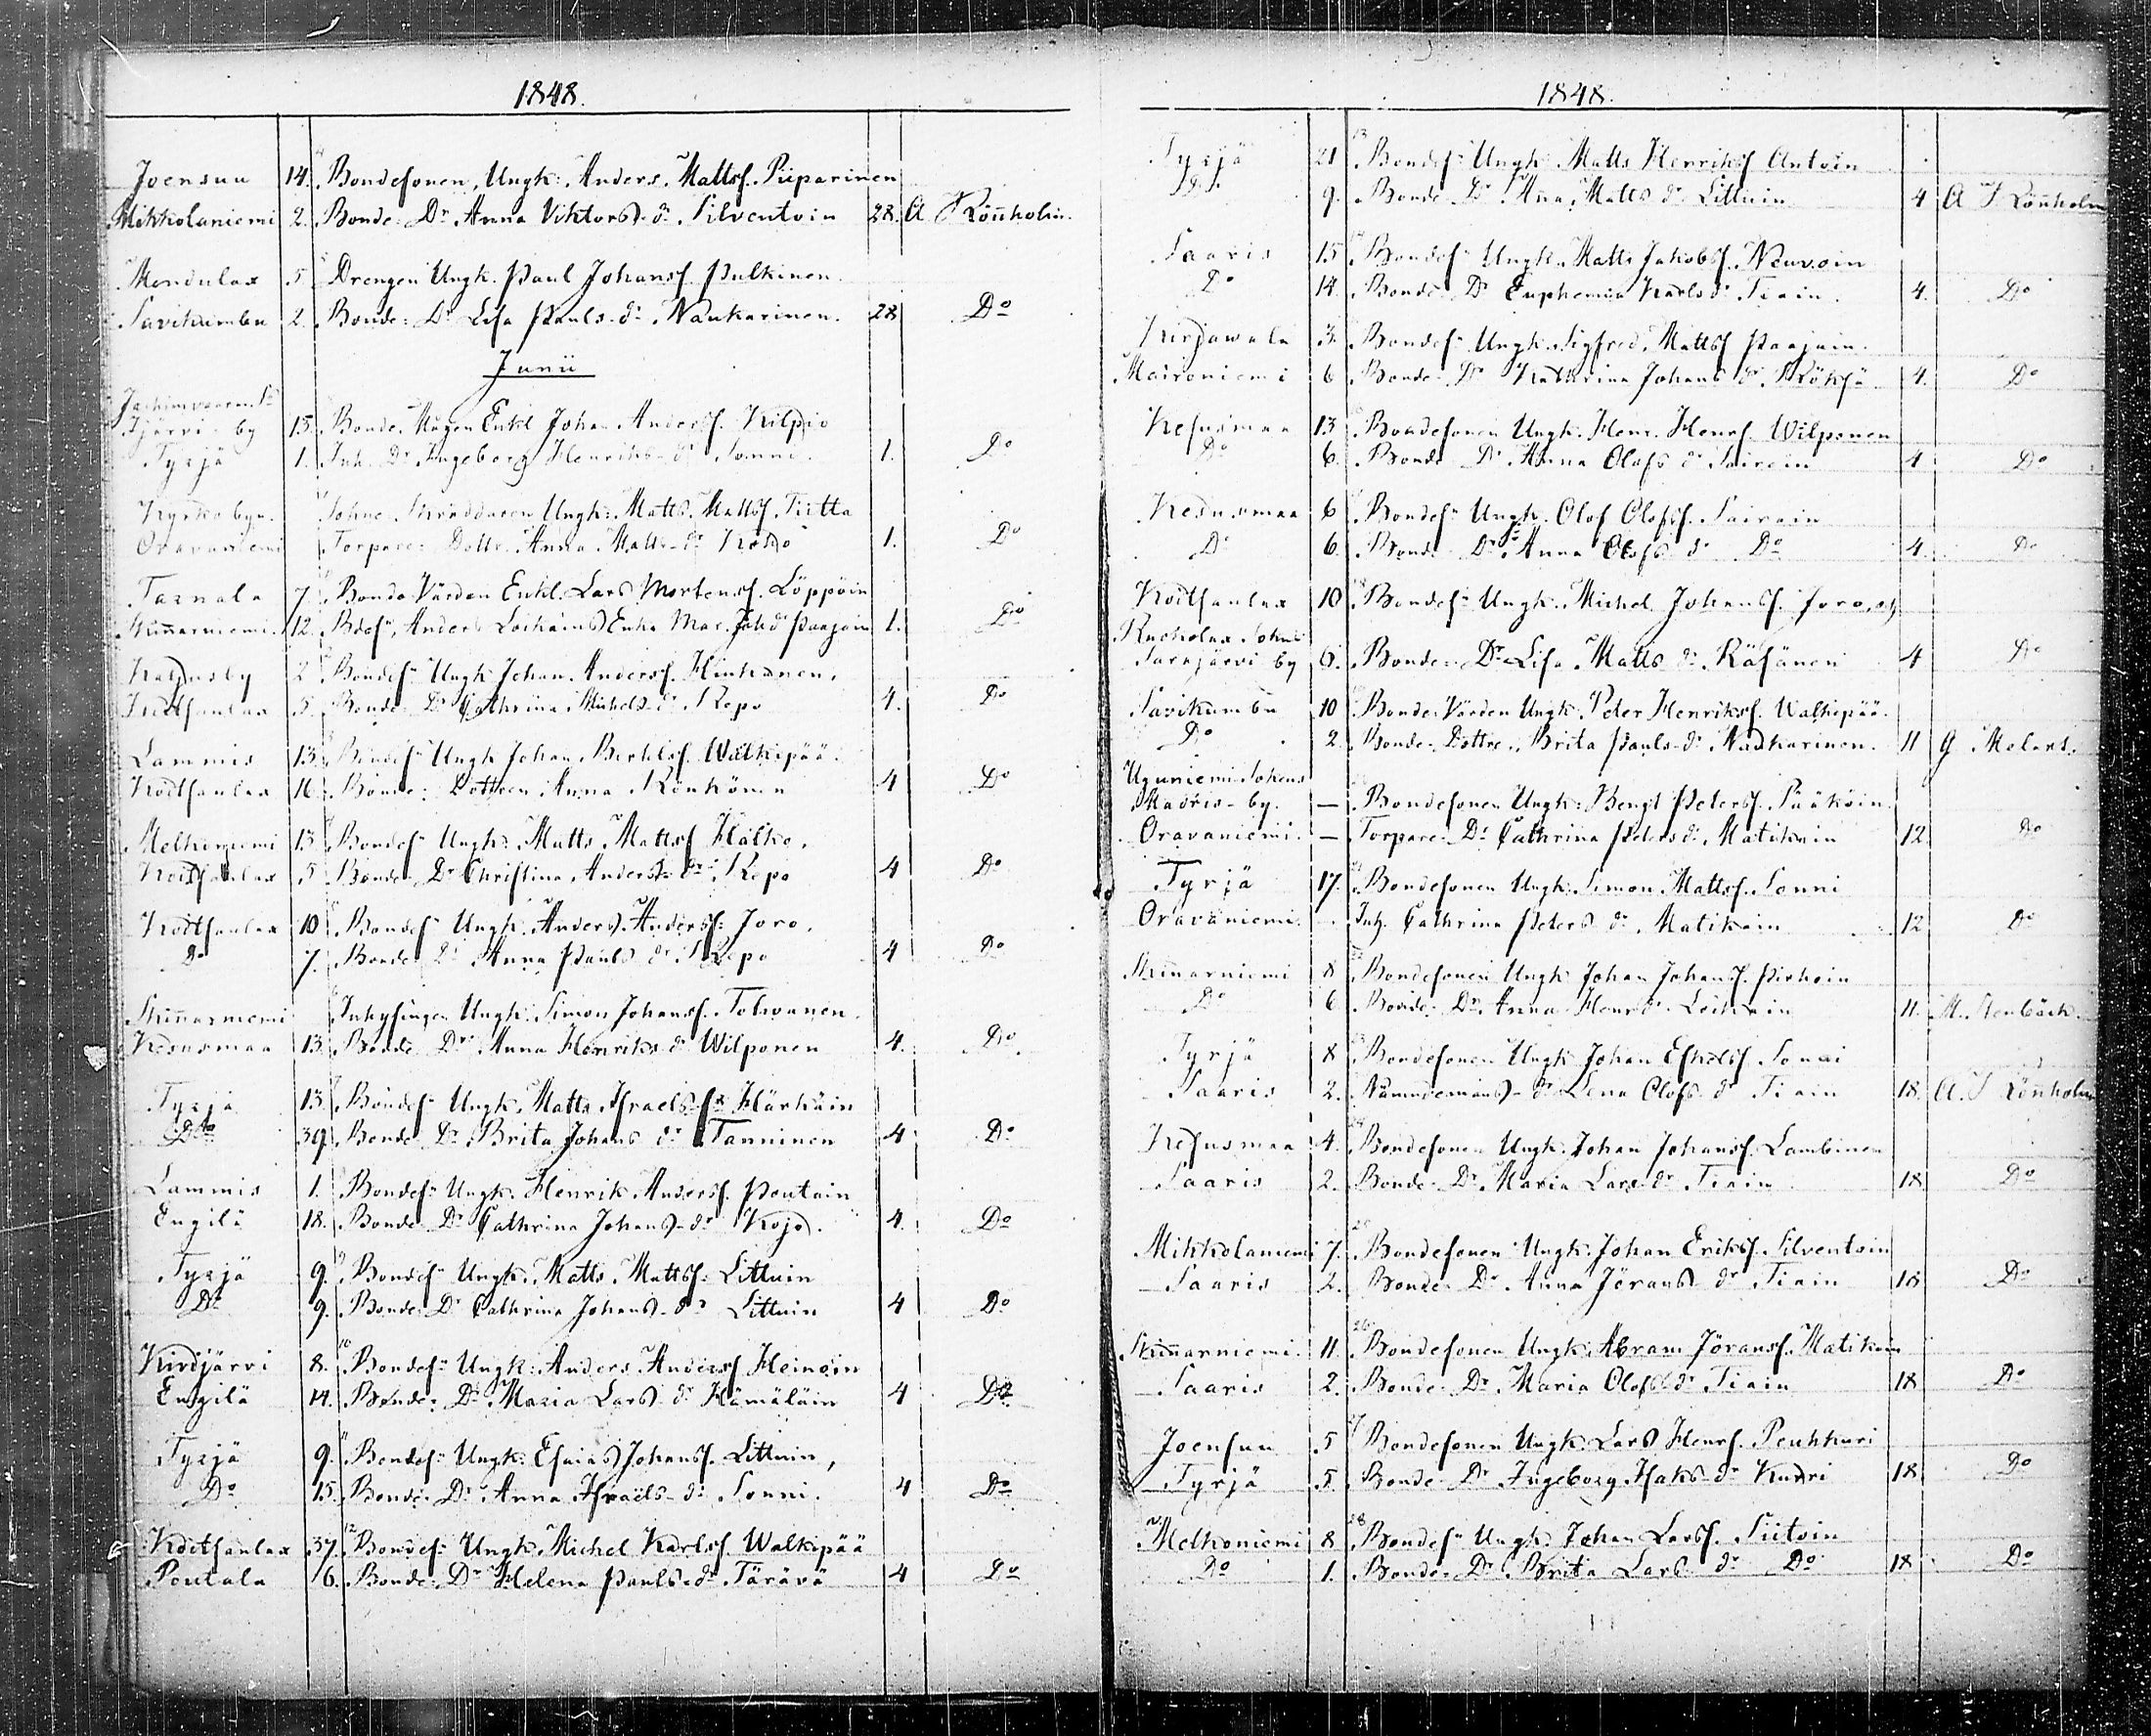 1848.
Joensuu 14. Bondesonen, Ungk: Anders Mattsf. Piiparinen
Mikkolaniemi 2. Bonde Dr Anna Viktors dr Silventoin 28. A Rönnholm.
Mendulax 5 Drengen Ungk. Paul Johansf. Pulkinen.
Savikumbu 2. Bonde Dr Lisa Pauls dr Naukarinen. 28 Do
Junii
Ijärvi by 15. Bonde Mågen Enkl Johan Andersf. Kilpio
Tyrjä 1. Inh. Dr Ingeborg Henriks dr Sonni. 1. Do
Kyrkobyn. Sohne Skräddaren Ungk: Matts Mattsf. Tiitta
Oravaniemi Torpare Dottr. Anna Matts dr Koso 1. Do
Tarnala 7. Bonde Värden Enkl. Lars Mortensf. Löppöin
Skinnarniemi. 12. Bdes. Anders Loikains Enka Mar. Joh dr Paajain 1. Do
Kalpusby 2 Bondes Ungk Johan Andersf. Hinkanen.
Koitsanlax 5. Bonde Dr Cathrina Michels dr Repo 4. Do
Lammis 13. Bondes Ungk Johan Bertilsf. Walkepää.
Koitsanlax 16. Bonde Dottren Anna Rönkönen 4 Do
Melkoniemi 13 Bondes Ungk: Matts Mattsf. Halko.
Koitsanlax 5 Bonde Dr Christina Anders dr Repo 4 Do
Koitsanlax 10 Bondes Ungk: Anders Andersf. Joro.
Do 7. Bonde Dr Anna Pauls dr Repo 4 Do
Skinnarniemi Inhysingen Ungk. Simon Johansf. Tolwanen.
Kesusmaa 13. Bonde Dr Anna Henriks dr Wilponen 4. Do.
Tyrjä 13. Bondes Ungk. Matts Israelsf. Härkäin
Do 39. Bonde Dr Brita Johans dr Tanninen 4 Do
Lammis 1. Bondes Ungk. Henrik Andersf. Poutain
Engilä 18. Bonde Dr Cathrina Johans dr Kojo. 4. Do
Tyrjä 9. Bondes Ungk. Matts Mattsf. Littuin
Do 9. Bonde Dr Cathrina Johans dr Littuin 4 Do
Kirdjärvi 8. 10 Bondes Ungk. Anders Andersf Heinoin
Engilä 14. Bonde Dr Maria Lars dr Hämäläin 4 Do
Tyrjä 9. 11 Bondes Ungk. Esaias Johansf. Littuin,
Do 15. Bonde Dr Anna Israels dr Sonni. 4 Do
Koitsanlax 37. 12 Bondes Ungk. Michel Karlsf. Walkepää
Poutala 6. Bonde Dr Helena Pauls dr Tärävä 4 Do
1848.
Tyrjä 21 13 Bondes Ungk Matts Henriksf Antoin
Do. 9. Bonde Dr Anna Matts dr Littuin 4 A F Rönnholm
Saaris 15 Bondes Ungk. Matts Jakobsf. Neuvoin
Do 14. Bonde Dr Euphemia Karls dr Tiain. 4. Do
Kirjawala 3. Bondes Ungk. Sigfred Mattsf Paajain.
Moironiemi 6 Bonde Dr Kathrina Johans dr Rökhä 4. Do
Kesusmaa 13 Bondesonen Ungk. Henr. Henrsf. Wilponen
Do 6. Bonde Dr Anna Olofs dr Sairain 4 Do
Kesusmaa 6 Bondes Ungk. Olof Olofsf. Sairain
Do 6. Bonde Dr Anna Olofs dr Do 4. Do
Koitsanlax 10 Bondes Ungk. Michel Johansf. Joro,
Ruokolax Sokns
Sarajärvi by 6. Bonde Dr Lisa Matts dr Räsänen 4 Do
Savikumbu 10 Bonde Värden Ungk. Peter Henriksf. Walkepää.
Do 2. Bonde Dottre. Brita Pauls dr Naukarinen. 11 G Melart.
Uguniemi Sokens
Madris by. — Bondesonen Ungk: Bengt Petersf. Pääköin
Oravaniemi. — Torpare Dr Cathrina Peters dr Matikain 12 Do
Tyrjä 17. Bondesonen Ungk. Simon Mattsf. Sonni
Oravaniemi. Inh. Cathrina Peters dr Matikain 12 Do
Skinnarniemi 8 Bondesonen Ungk. Johan Johansf. Pirhoin
Do 6 Bonde Dr Anna Henr dr Loikain 11. M. Stenbäck.
Tyrjä 8 Bondesonen Ungk Johan Eskelsf Sonni
Saaris 2. Nämndemans dr Lena Olofs dr Tiain 18. A. F Rönnholm
Kesusmaa 4. Bondesonen Ungk: Johan Johansf. Lambinen
Saaris 2. Bonde Dr Maria Lars dr Tiain 18. Do
Mikkolaniemi 7. 25 Bondesonen Ungk. Johan Eriksf. Silventoin
Saaris 2. Bonde Dr Anna Jörans dr Tiain 18 Do
Skinnarniemi. 11. 26 Bondesonen Ungk. Abram Jöransf. Matikain
Saaris 2. Bonde Dr Maria Olofs dr Tiain 18 Do
Joensuu 5 Bondesonen Ungk. Lars Henrsf. Peuhkuri
Tyrjä 5. Bonde Dr Ingeborg Isaks dr Kuari 18 Do
Melkoniemi 8 28 Bondes Ungk: Johan Larsf. Siitoin
Do 1. Bonde Dr Brita Lars dr Do 18 Do